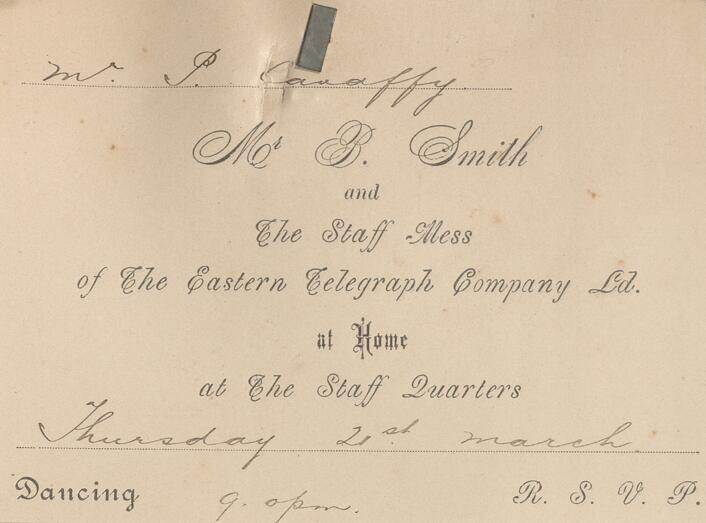 Mr. P. Cavaffy.
Mr B. Smith
and
The Staff Mess
of The Eastern Telegraph Company Ld.
at Home
at The Staff Quarters
Thursday 21st. March
Dancing 9.0pm. R. S. V. P.